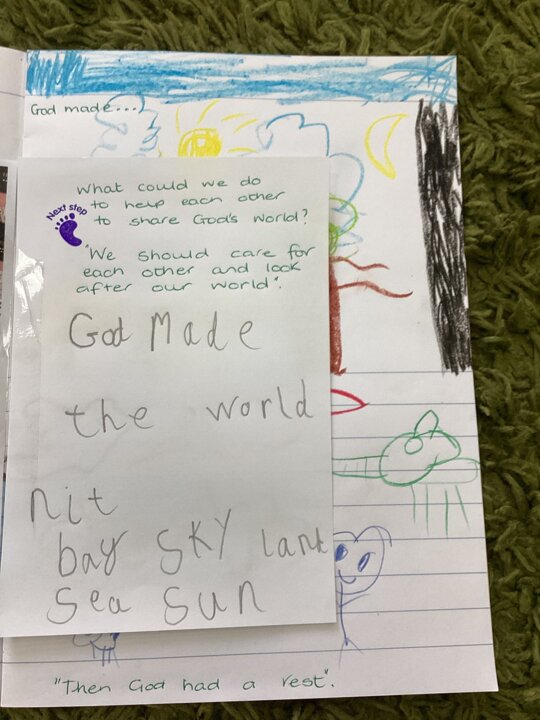 God made...
What could we do
Next step
to help each other
to share God's world?
"We should care for
each other and look
after our world".
God Made
the world
nit
bay SKY lant
sea sun
"Then God had a rest".